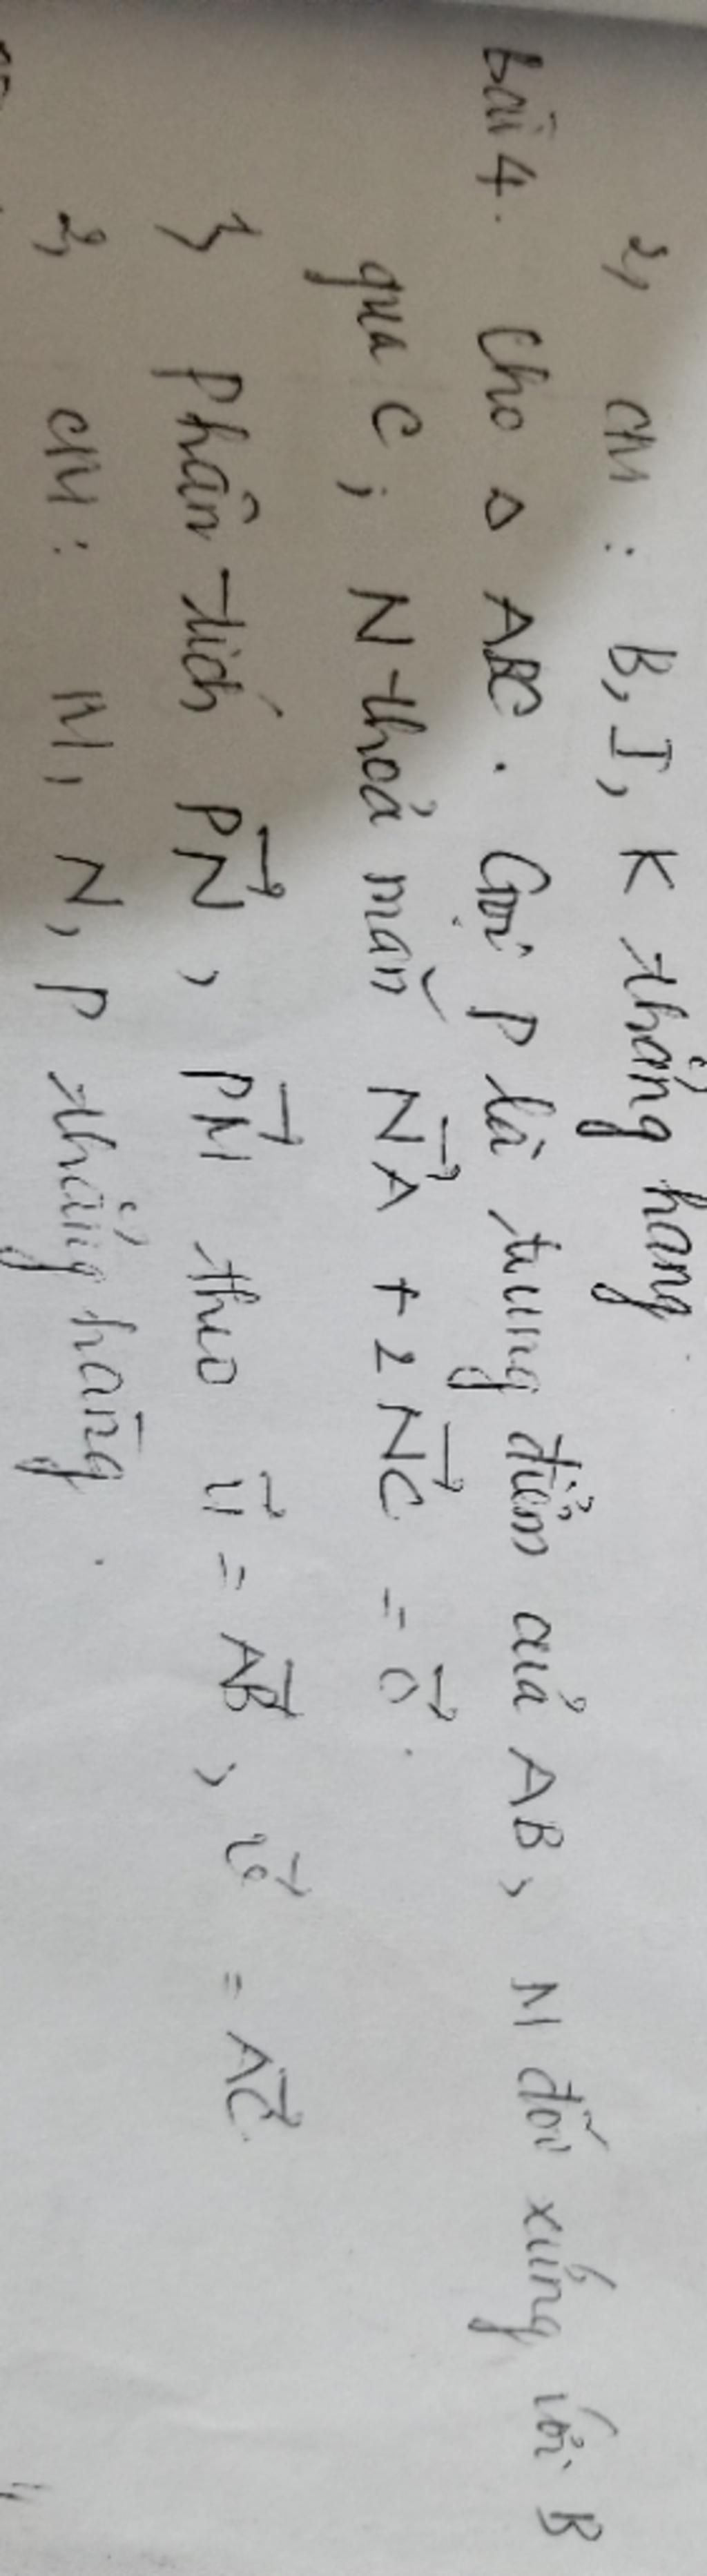 2, CM : B, I, K thẳng hàng.
bài 4. Cho Δ ABC. Gọi P là trung điểm của AB, M đối xứng với B
qua C, N thoả mãn NA⃗ + 2NC⃗ = 0⃗.
1, Phân tích PN⃗, PM⃗ theo u⃗ = AB⃗, v⃗ = AC⃗.
2, CM: M, N, P thẳng hàng.